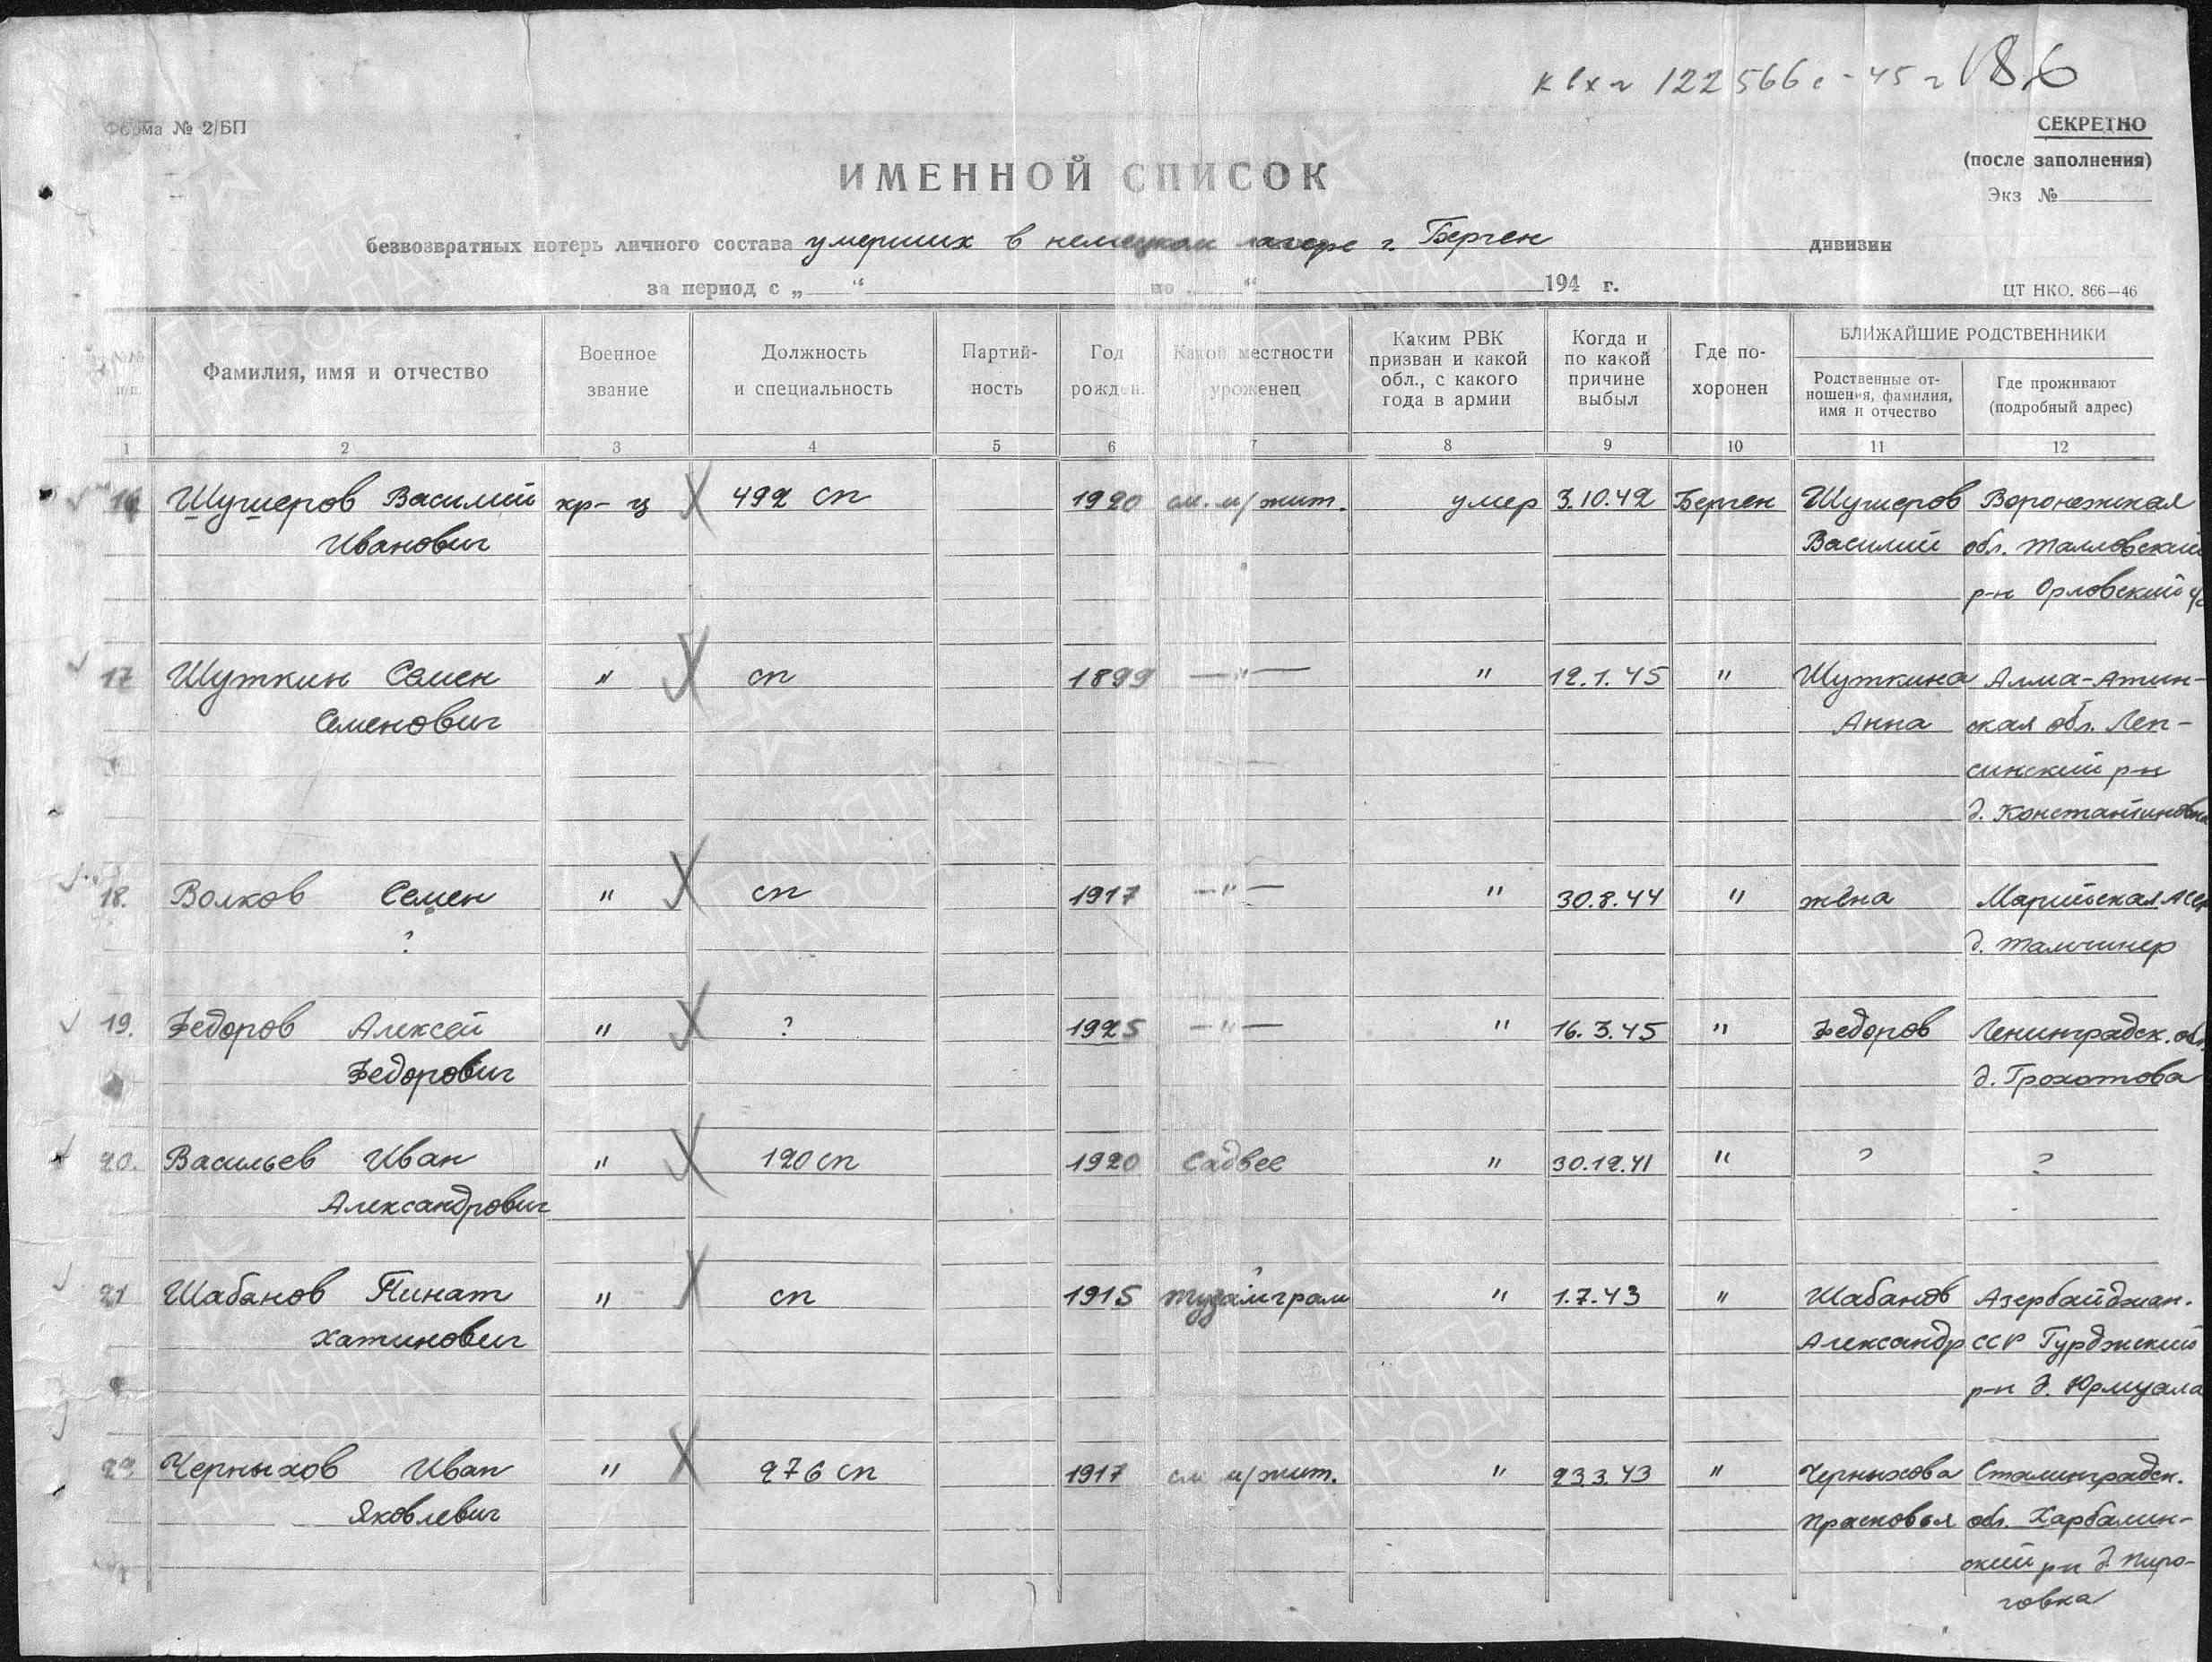 к вх № 122566с - 45 г 186
Форма № 2/БП
СЕКРЕТНО
(после заполнения)
Экз №
ИМЕННОЙ СПИСОК
безвозвратных потерь личного состава умерших в немецком лагере г. Берген дивизии
за период с „ “ по „ “ 194 г.
ЦТ НКО. 866—46
№№ п/п.
Фамилия, имя и отчество
Военное звание
Должность и специальность
Партий-
ность
Год рожден.
Какой местности уроженец
Каким РВК
призван и какой
обл., с какого
года в армии
Когда и
по какой
причине
выбыл
Где по-
хоронен
БЛИЖАЙШИЕ РОДСТВЕННИКИ
Родственные от-
ношения, фамилия,
имя и отчество
Где проживают
(подробный адрес)
1 2 3 4 5 6 7 8 9 10 11 12
16 Шушеров Василий кр-ц 492 сп 1920 см. м/жит. умер 3.10.42 Берген Шушеров Воронежская
Иванович Василий обл. Таловский
р-н Орловский
17 Шуткин Семен " сп 1899 —"— " 12.1.45 " Шуткина Алма-Атин-
Семенович Анна ская обл. Леп-
синский р-н
д. Константиновка
18. Волков Семен " сп 1917 —"— " 30.8.44 " жена Марийская АССР
? д. Талчинер
19. Федоров Алексей " ? 1925 —"— " 16.3.45 " Федоров Ленинградск. обл.
Федорович д. Грохотова
20. Васильев Иван " 120 сп 1920 Садвее " 30.12.41 " ? ?
Александрович
21 Шабанов Пинат " сп 1915 " 1.7.43 " Шабанов Азербайджан.
Хатинович Александр ССР Гурджский
р-н д. Юрмуала
22 Черныхов Иван " 276 сп 1917 см м/жит. " 23.3.43 " Черныхова Сталинградск.
Яковлевич Прасковья обл. Харбалин-
ский р-н д. Пиро-
говка
ПАМЯТЬ
НАРОДА